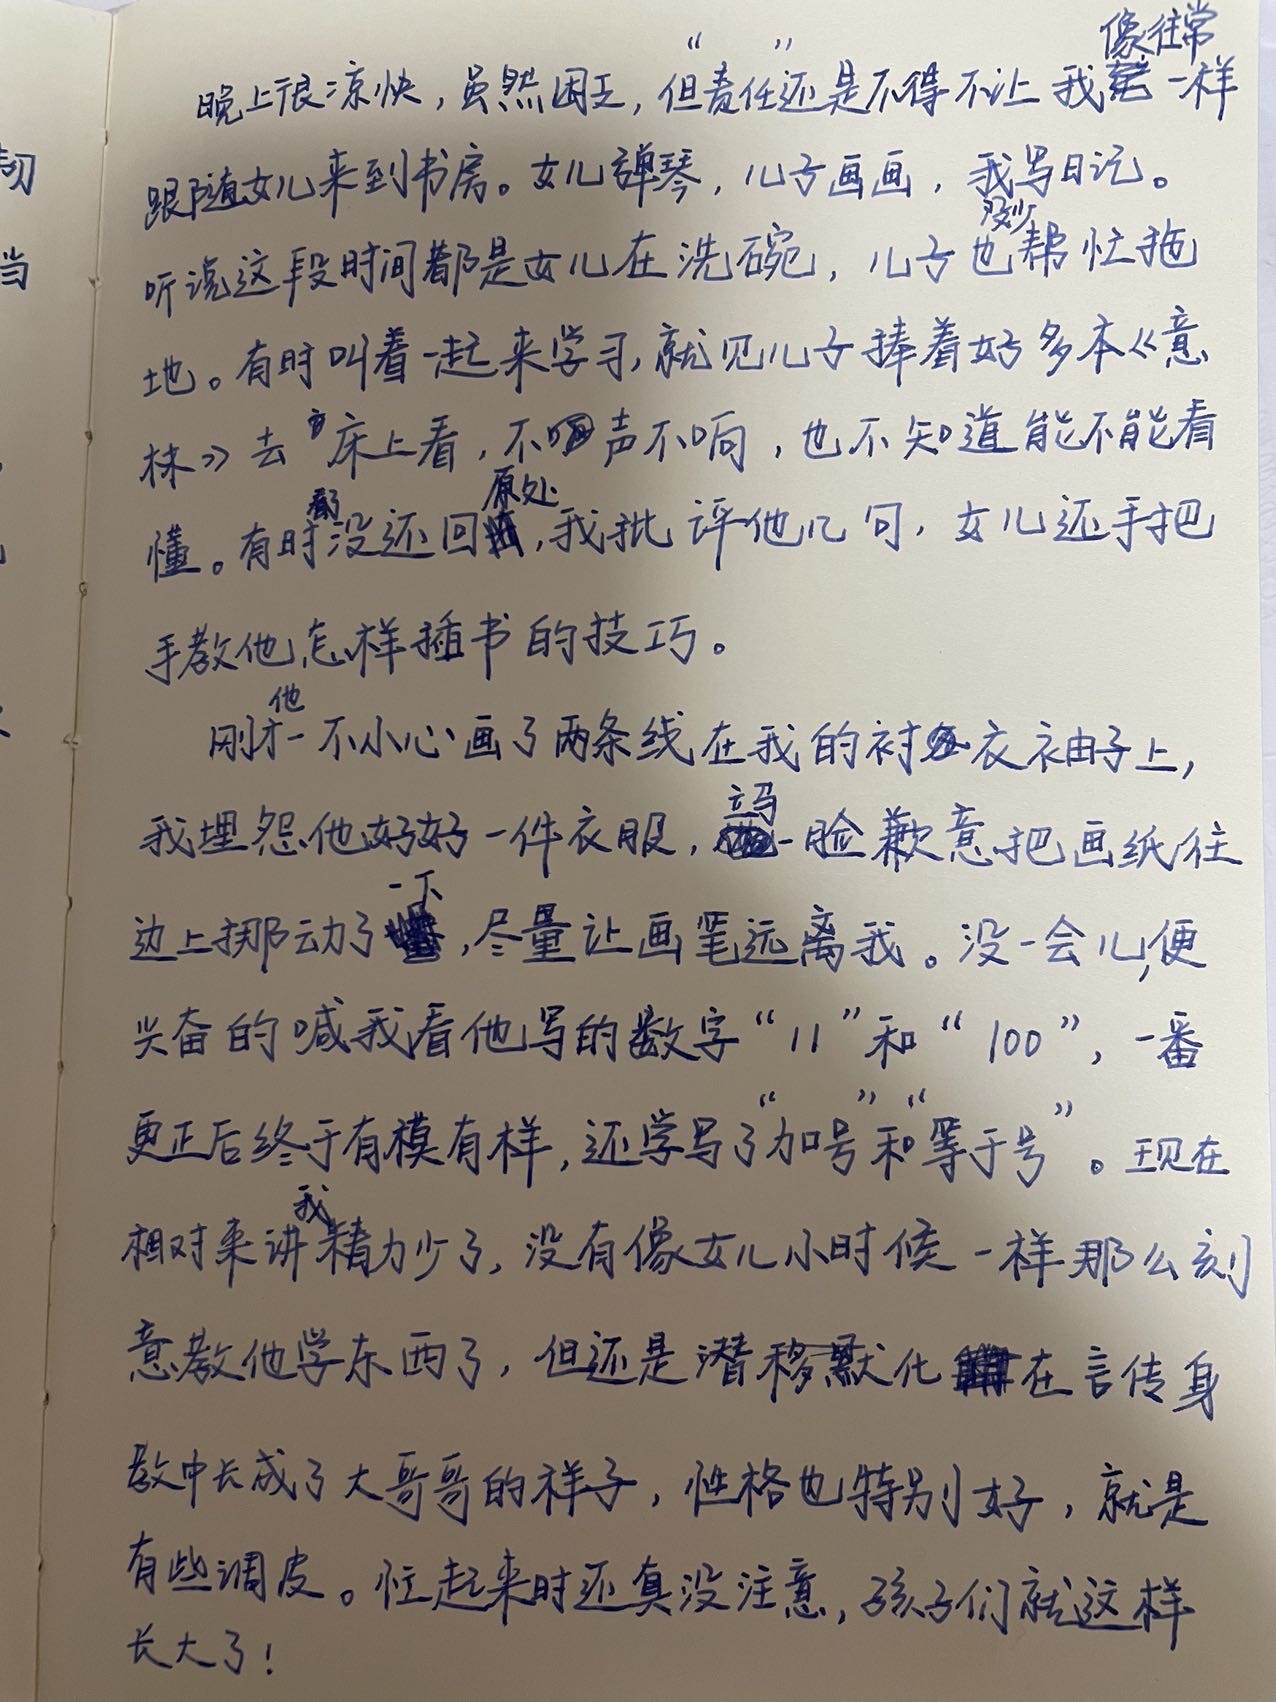 晚上很凉快，虽然困乏，但“责任”还是不得不让我像往常一样
跟随女儿来到书房。女儿弹琴，儿子画画，我写日记。
听说这段时间都是女儿在洗碗，儿子也没少帮忙拖
地。有时叫着一起来学习，就见儿子捧着好多本《意
林》去床上看，不声不响，也不知道能不能看
懂。有时都没还回原处，我批评他几句，女儿还手把
手教他怎样插书的技巧。
刚才他一不小心画了两条线在我的衬衣衣袖子上，
我埋怨他好好一件衣服，立马一脸歉意把画纸往
边上挪动了一下，尽量让画笔远离我。没一会儿，便
兴奋的喊我看他写的数字“11”和“100”，一番
更正后终于有模有样，还学写了“加号”和“等于号”。现在
相对来讲我精力少了，没有像女儿小时候一样那么刻
意教他学东西了，但还是潜移默化在言传身
教中长成了大哥哥的样子，性格也特别好，就是
有些调皮。忙起来时还真没注意，孩子们就这样
长大了！
切
当